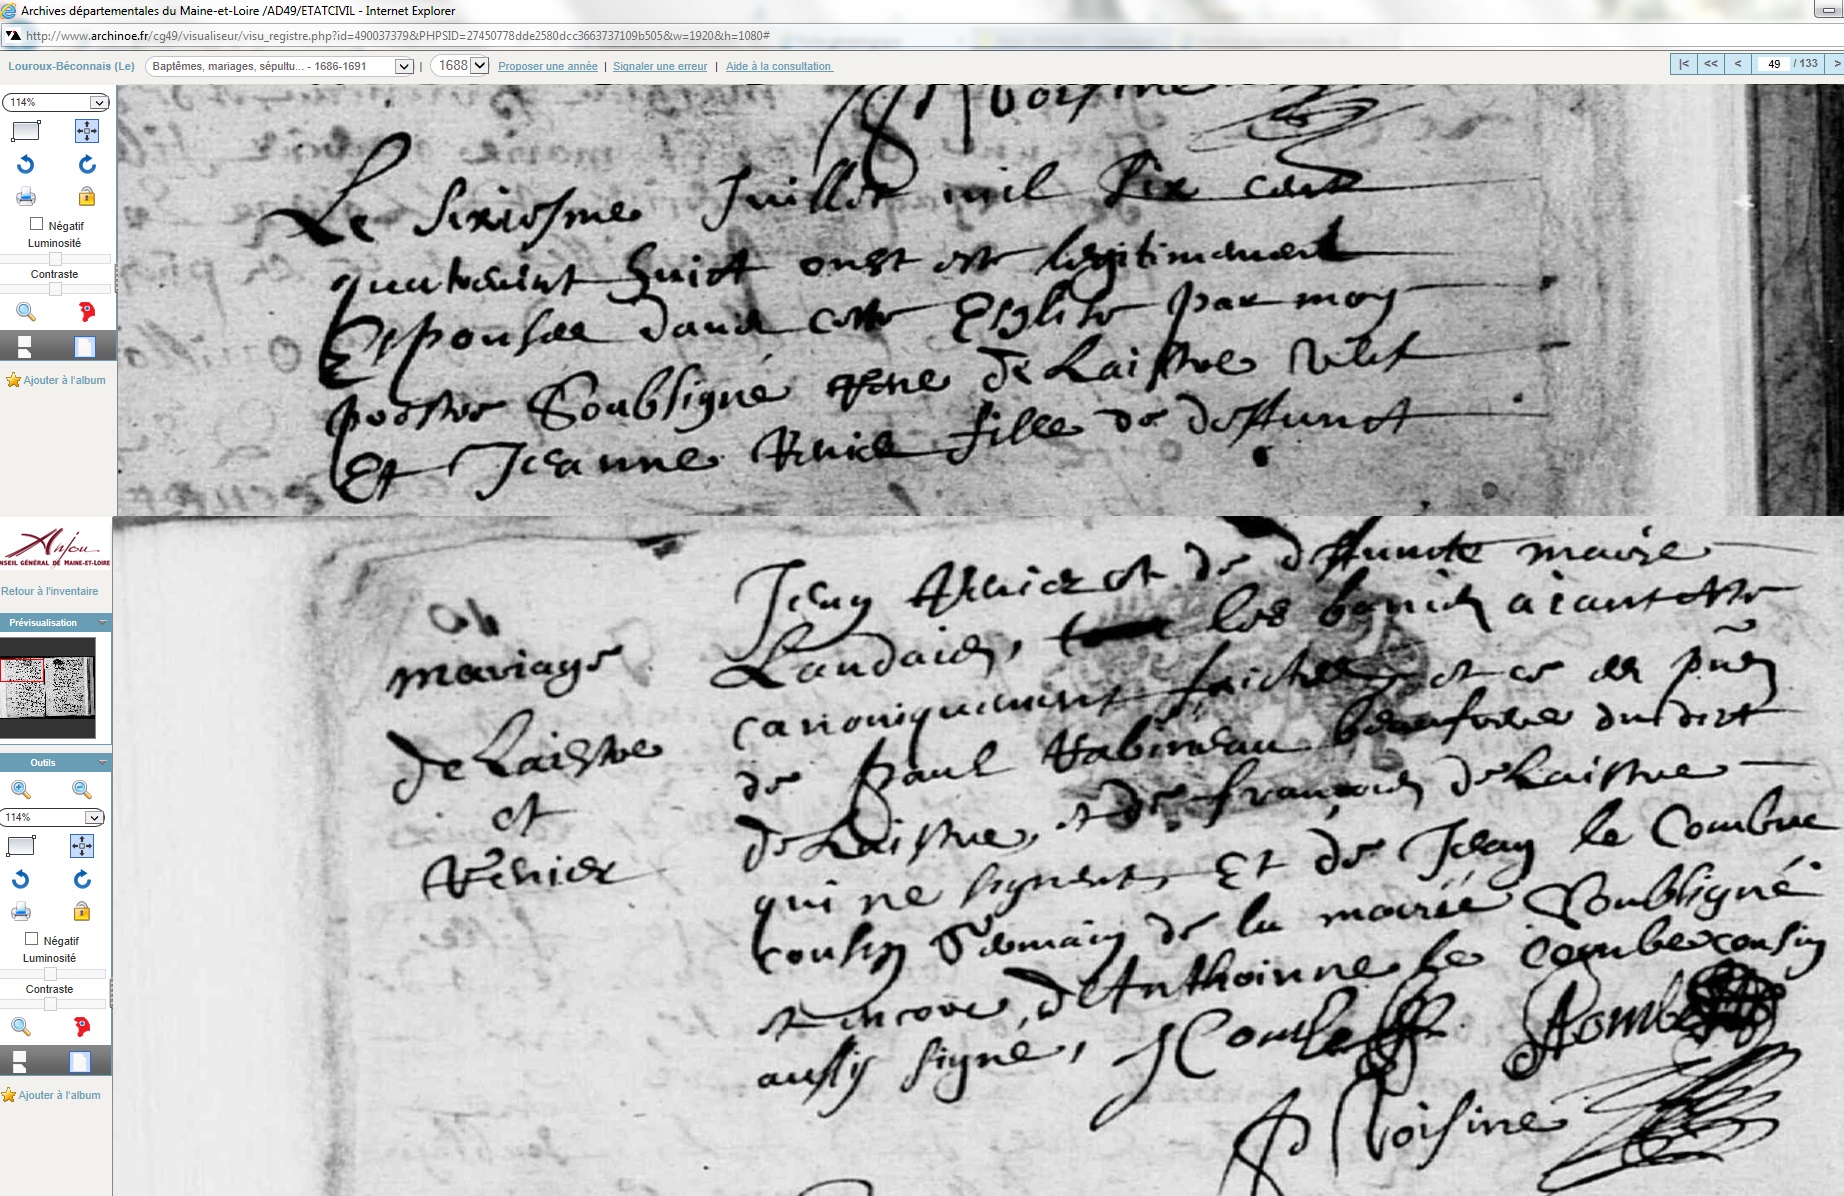 Archives départementales du Maine-et-Loire /AD49/ETATCIVIL - Internet Explorer
http://www.archinoe.fr/cg49/visualiseur/visu_registre.php?id=490037379&PHPSID=27450778dde2580dcc3663737109b505&w=1920&h=1080#
Louroux-Béconnais (Le) Baptêmes, mariages, sépultu... - 1686-1691 | 1688 Proposer une année | Signaler une erreur | Aide à la consultation |< << < 49 / 133 >
114%
Négatif
Luminosité
Contraste
Ajouter à l'album
Voisine
Le sixiesme Juillet mil six cent
quatrevint huict onst esté legitimement
Espousée dans cette Eglise par moy
prestre Soubsigné René de Laistre
Et Jeanne fille de deffunct
Anjou
CONSEIL GÉNÉRAL DE MAINE-ET-LOIRE
Retour à l'inventaire
Prévisualisation
Outils
114%
Négatif
Luminosité
Contraste
Ajouter à l'album
mariage
de Laistre
et
Verier
Jean et de deffuncte marie
Landais, les bancs aiant esté
canoniquement faiches et ce en
de Paul beaufrere dudict
de Laistre, et de francois de Laistre
qui ne signent, Et de Jean le Combre
cousin Germain de la mariée Soubsigné
et encore d'Anthoinne le combre cousin
aussy signé,
Voisine